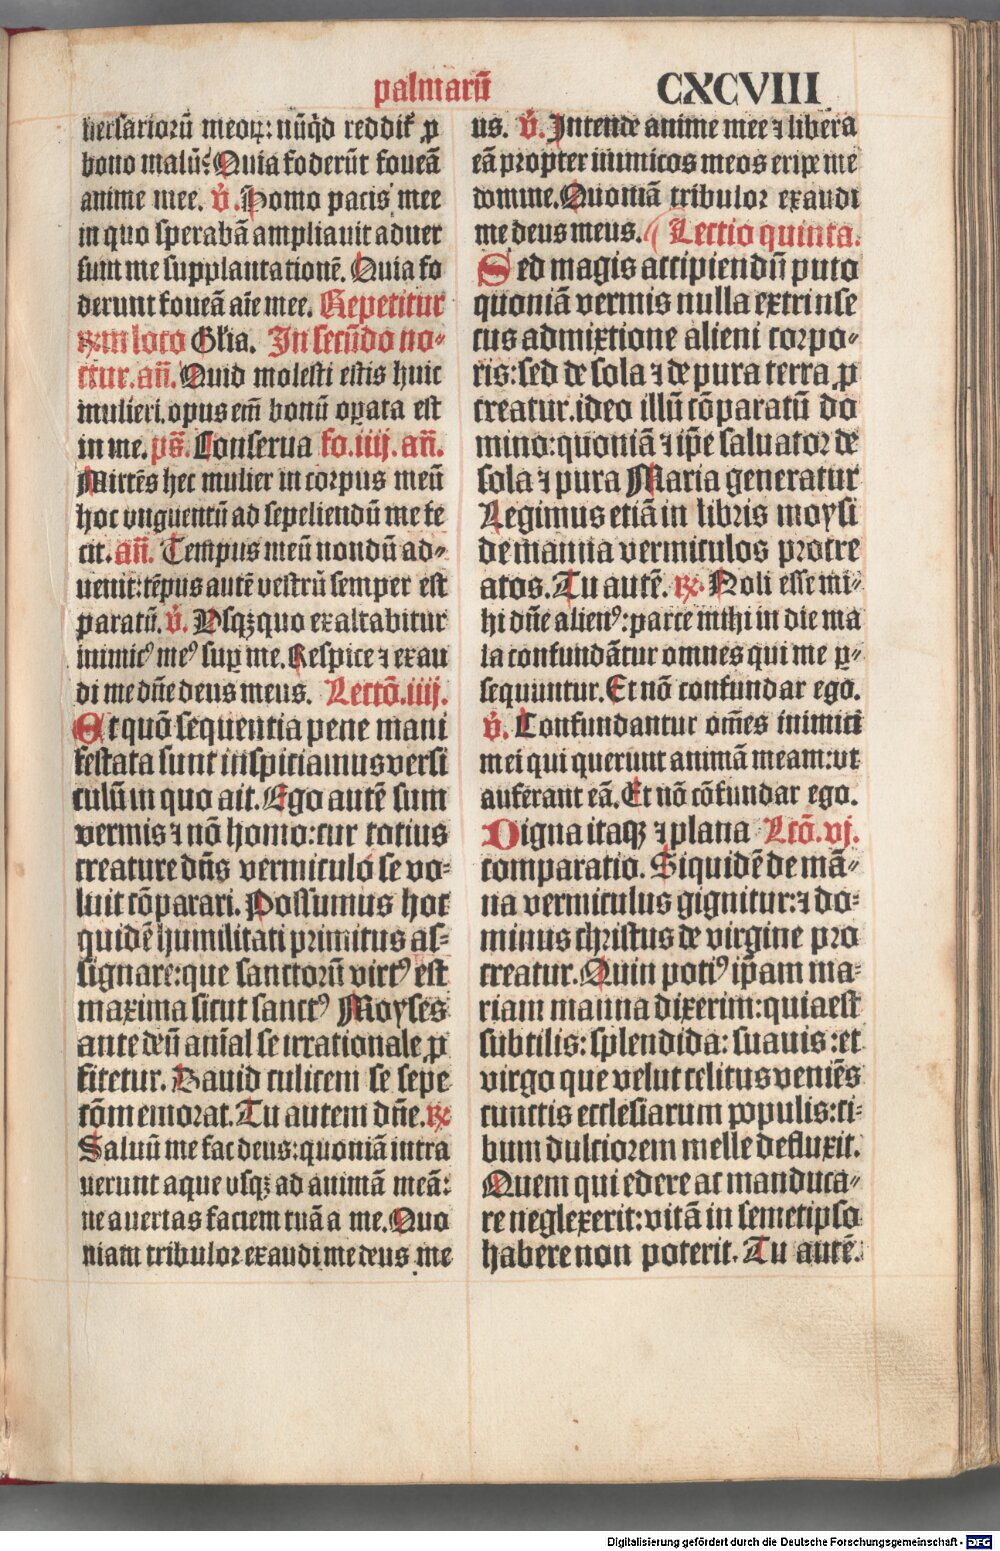 palmarū CXCVIII
uersariorū meoꝝ: nūq̇d reddit᷑ ꝓ
bono malū: Quia foderūt foueā
anime mee. ℣. Homo pacis mee
in quo sperabā ampliauit aduer
sum me supplantationē. Quia fo
derunt foueā aīe mee. Repetitur
℟m loco Gl̄ia. In secūdo no-
ctur. an̄. Quid molesti estis huic
mulieri. opus em̄ bonū oꝑata est
in me. ps̄. Conserua fo. iiij. an̄.
Mittēs hec mulier in corpus meū
hoc vnguentū ad sepeliendū me fe
cit. an̄. Tempus meū nondū ad-
uenit: tēpus autē vestrū semper est
paratū. ℣. Vsqꝫquo exaltabitur
inimicꝰ meꝰ suꝑ me. Respice ⁊ exau
di me dn̄e deus meus. Lectō. iiij.
Et quō sequentia pene mani
festata sunt inspiciamus versi
culū in quo ait. Ego autē sum
vermis ⁊ nō homo: cur totius
creature dn̄s vermiculo se vo-
luit cōparari. Possumus hoc
quidē humilitati primitus as-
signare: que sanctorū virtꝰ est
maxima sicut sanctꝰ Moyses
ante deū anīal se irrationale ꝓ
fitetur. Dauid culicem se sepe
cōmemorat. Tu autem dn̄e. ℟
Saluū me fac deus: quoniā intra
uerunt aque vsqꝫ ad animā meā:
ne auertas faciem tuā a me. Quo
niam tribulor exaudi me deus me
us. ℣. Intende anime mee ⁊ libera
eā propter inimicos meos eripe me
domine. Quoniā tribulor exaudi
me deus meus. Lectio quinta.
Sed magis accipiendū puto
quoniā vermis nulla extrinse
cus admixtione alieni corpo-
ris: sed de sola ⁊ de pura terra ꝓ
creatur. ideo illū cōparatū do
mino: quoniā ⁊ ip̄e saluator de
sola ⁊ pura Maria generatur
Legimus etiā in libris moysi
de manna vermiculos procre
atos. Tu autē. ℟. Noli esse mi-
hi dn̄e alienꝰ: parce mihi in die ma
la confundātur omnes qui me ꝑ-
sequuntur. Et nō confundar ego.
℣. Confundantur om̄es inimici
mei qui querunt animā meam: vt
auferant eā. Et nō cōfundar ego.
Digna itaqꝫ ⁊ plana Lcō. vj.
comparatio. Siquidē de mā-
na vermiculus gignitur: ⁊ do-
minus christus de virgine pro
creatur. Quin potiꝰ ip̄am ma-
riam manna dixerim: quia est
subtilis: splendida: suauis: et
virgo que velut celitus veniēs
cunctis ecclesiarum populis: ci-
bum dulciorem melle defluxit.
Quem qui edere ac manduca-
re neglexerit: vitā in semetipso
habere non poterit. Tu autē.
Digitalisierung gefördert durch die Deutsche Forschungsgemeinschaft - DFG